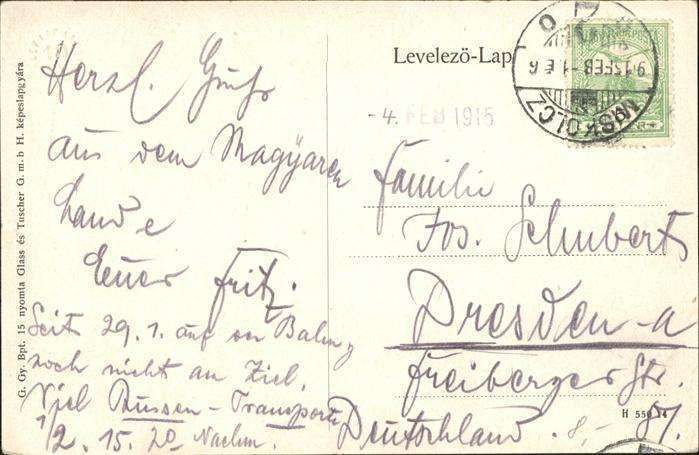 Levelező-Lap
MISKOLCZ
915 FEB -1 E 6
-4. FEB 1915
Herzl. Gruß
aus dem Magyaren
Lande
Euer Fritz.
Seit 29.1. auf der Bahn,
noch nicht am Ziel.
Viel Russen-Transporte
1/2. 15. 20 Nachm.
Familie
Jos. Schubert
Dresden-A
Freiberger Str.
Deutschland
8,-
H 550 14
G. Gy. Bpt. 15 nyomta Glass és Tuscher G. m. b H. képeslapgyára